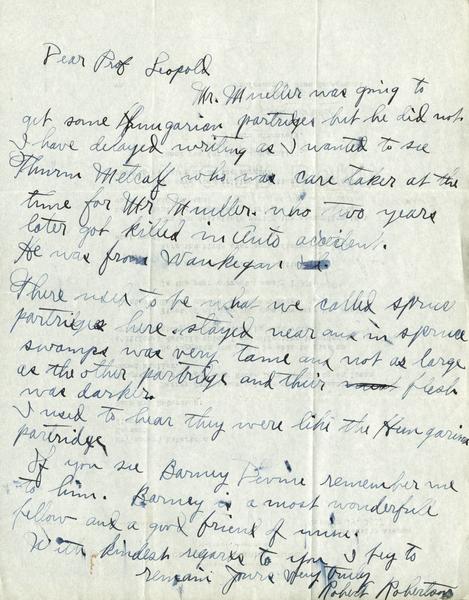 Dear Prof Leopold
Mr. Mueller was going to
get some Hungarian partridges but he did not
I have delayed writing as I wanted to see
Thurm Metcalf who was care taker at the
time for Mr Mueller. who two years
later got killed in Auto accident.
He was from Waukegan
There used to be what we called spruce
partriges here. stayed near and in spruce
swamps was very tame and not as large
as the other partridge and their flesh
was darker.
I used to hear they were like the Hungarian
partridge
If you see Barney Devine remember me
to him. Barney is a most wonderfull
fellow and a good friend of mine.
With kindest regards to you I beg to
remain Yours very truly
Robert Robertson